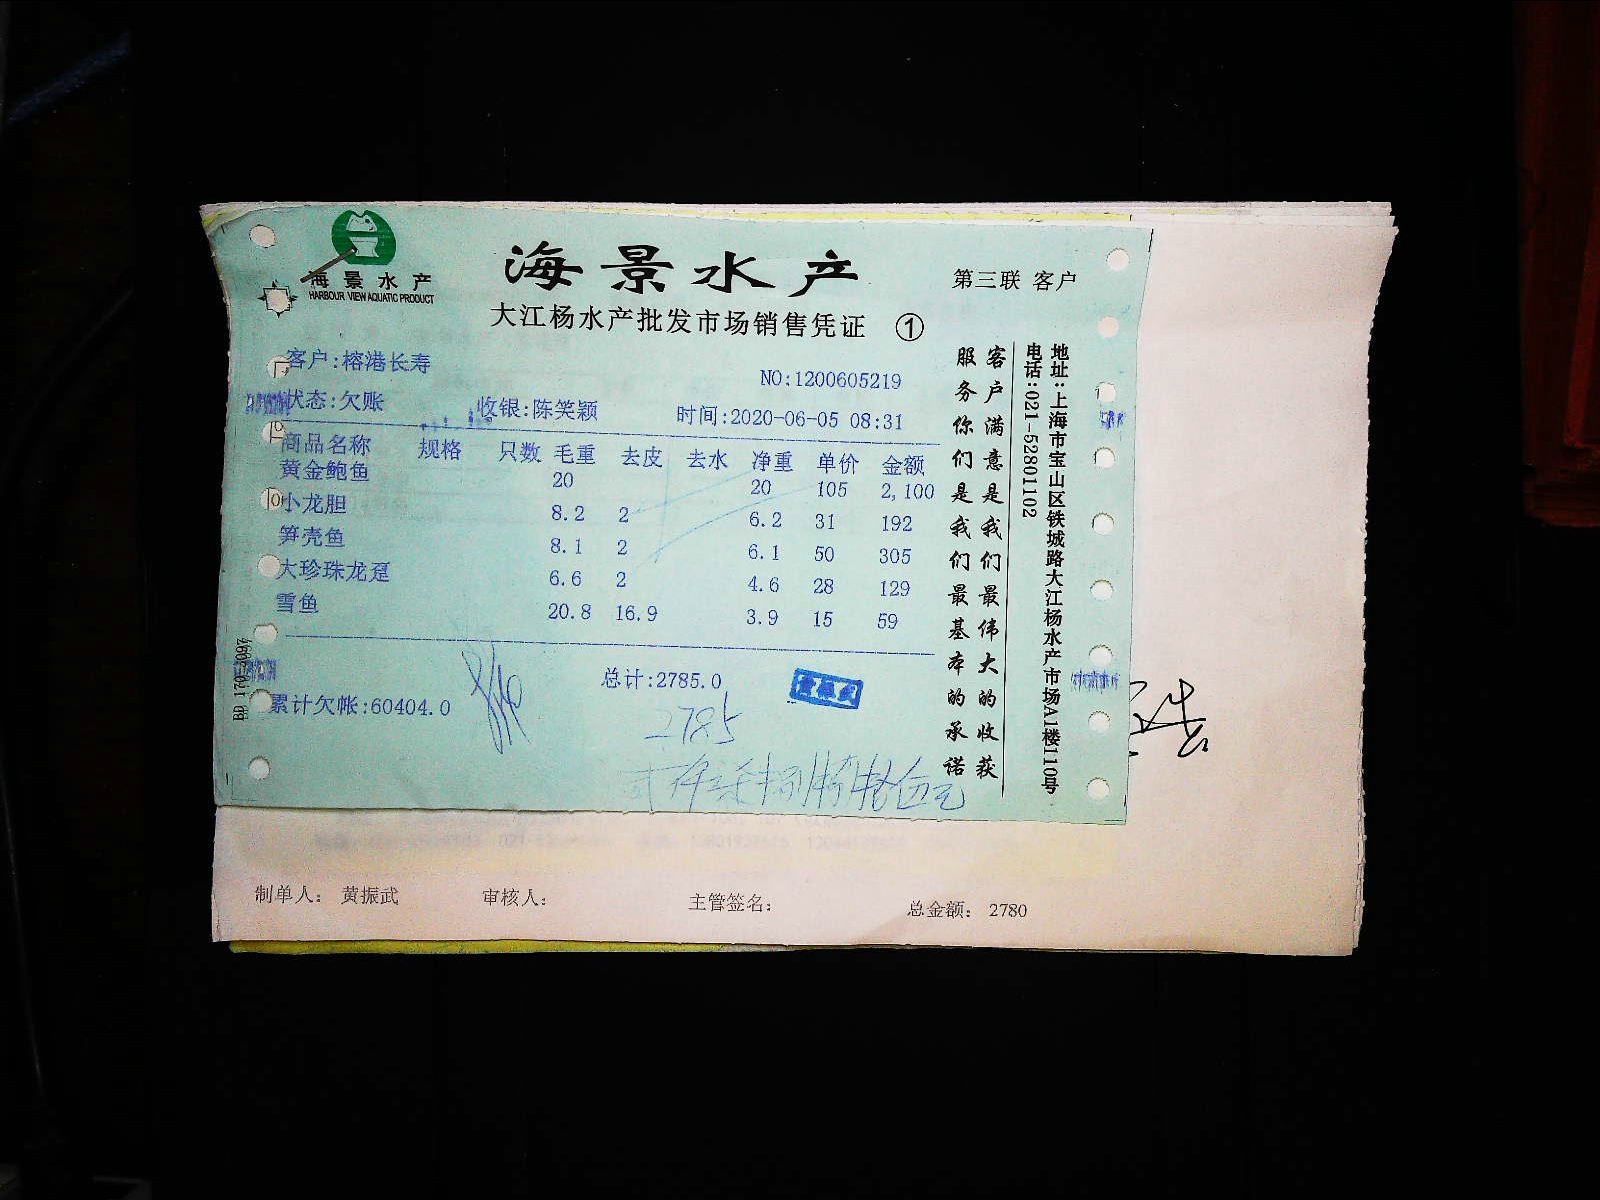 海景水产
HARBOUR VIEW AQUATIC PRODUCT
海景水产
第三联 客户
大江杨水产批发市场销售凭证 ①
客户:榕港长寿
NO:1200605219
状态:欠账 收银:陈笑颖 时间:2020-06-05 08:31
商品名称 规格 只数 毛重 去皮 去水 净重 单价 金额
黄金鲍鱼 20 20 105 2,100
小龙胆 8.2 2 6.2 31 192
笋壳鱼 8.1 2 6.1 50 305
大珍珠龙趸 6.6 2 4.6 28 129
雪鱼 20.8 16.9 3.9 15 59
总计:2785.0
累计欠帐:60404.0
2785
客户满意是我们最伟大的收获
服务你们是我们最基本的承诺
地址:上海市宝山区铁城路大江杨水产市场A1楼110号
电话:021-52801102
制单人: 黄振武 审核人: 主管签名: 总金额: 2780